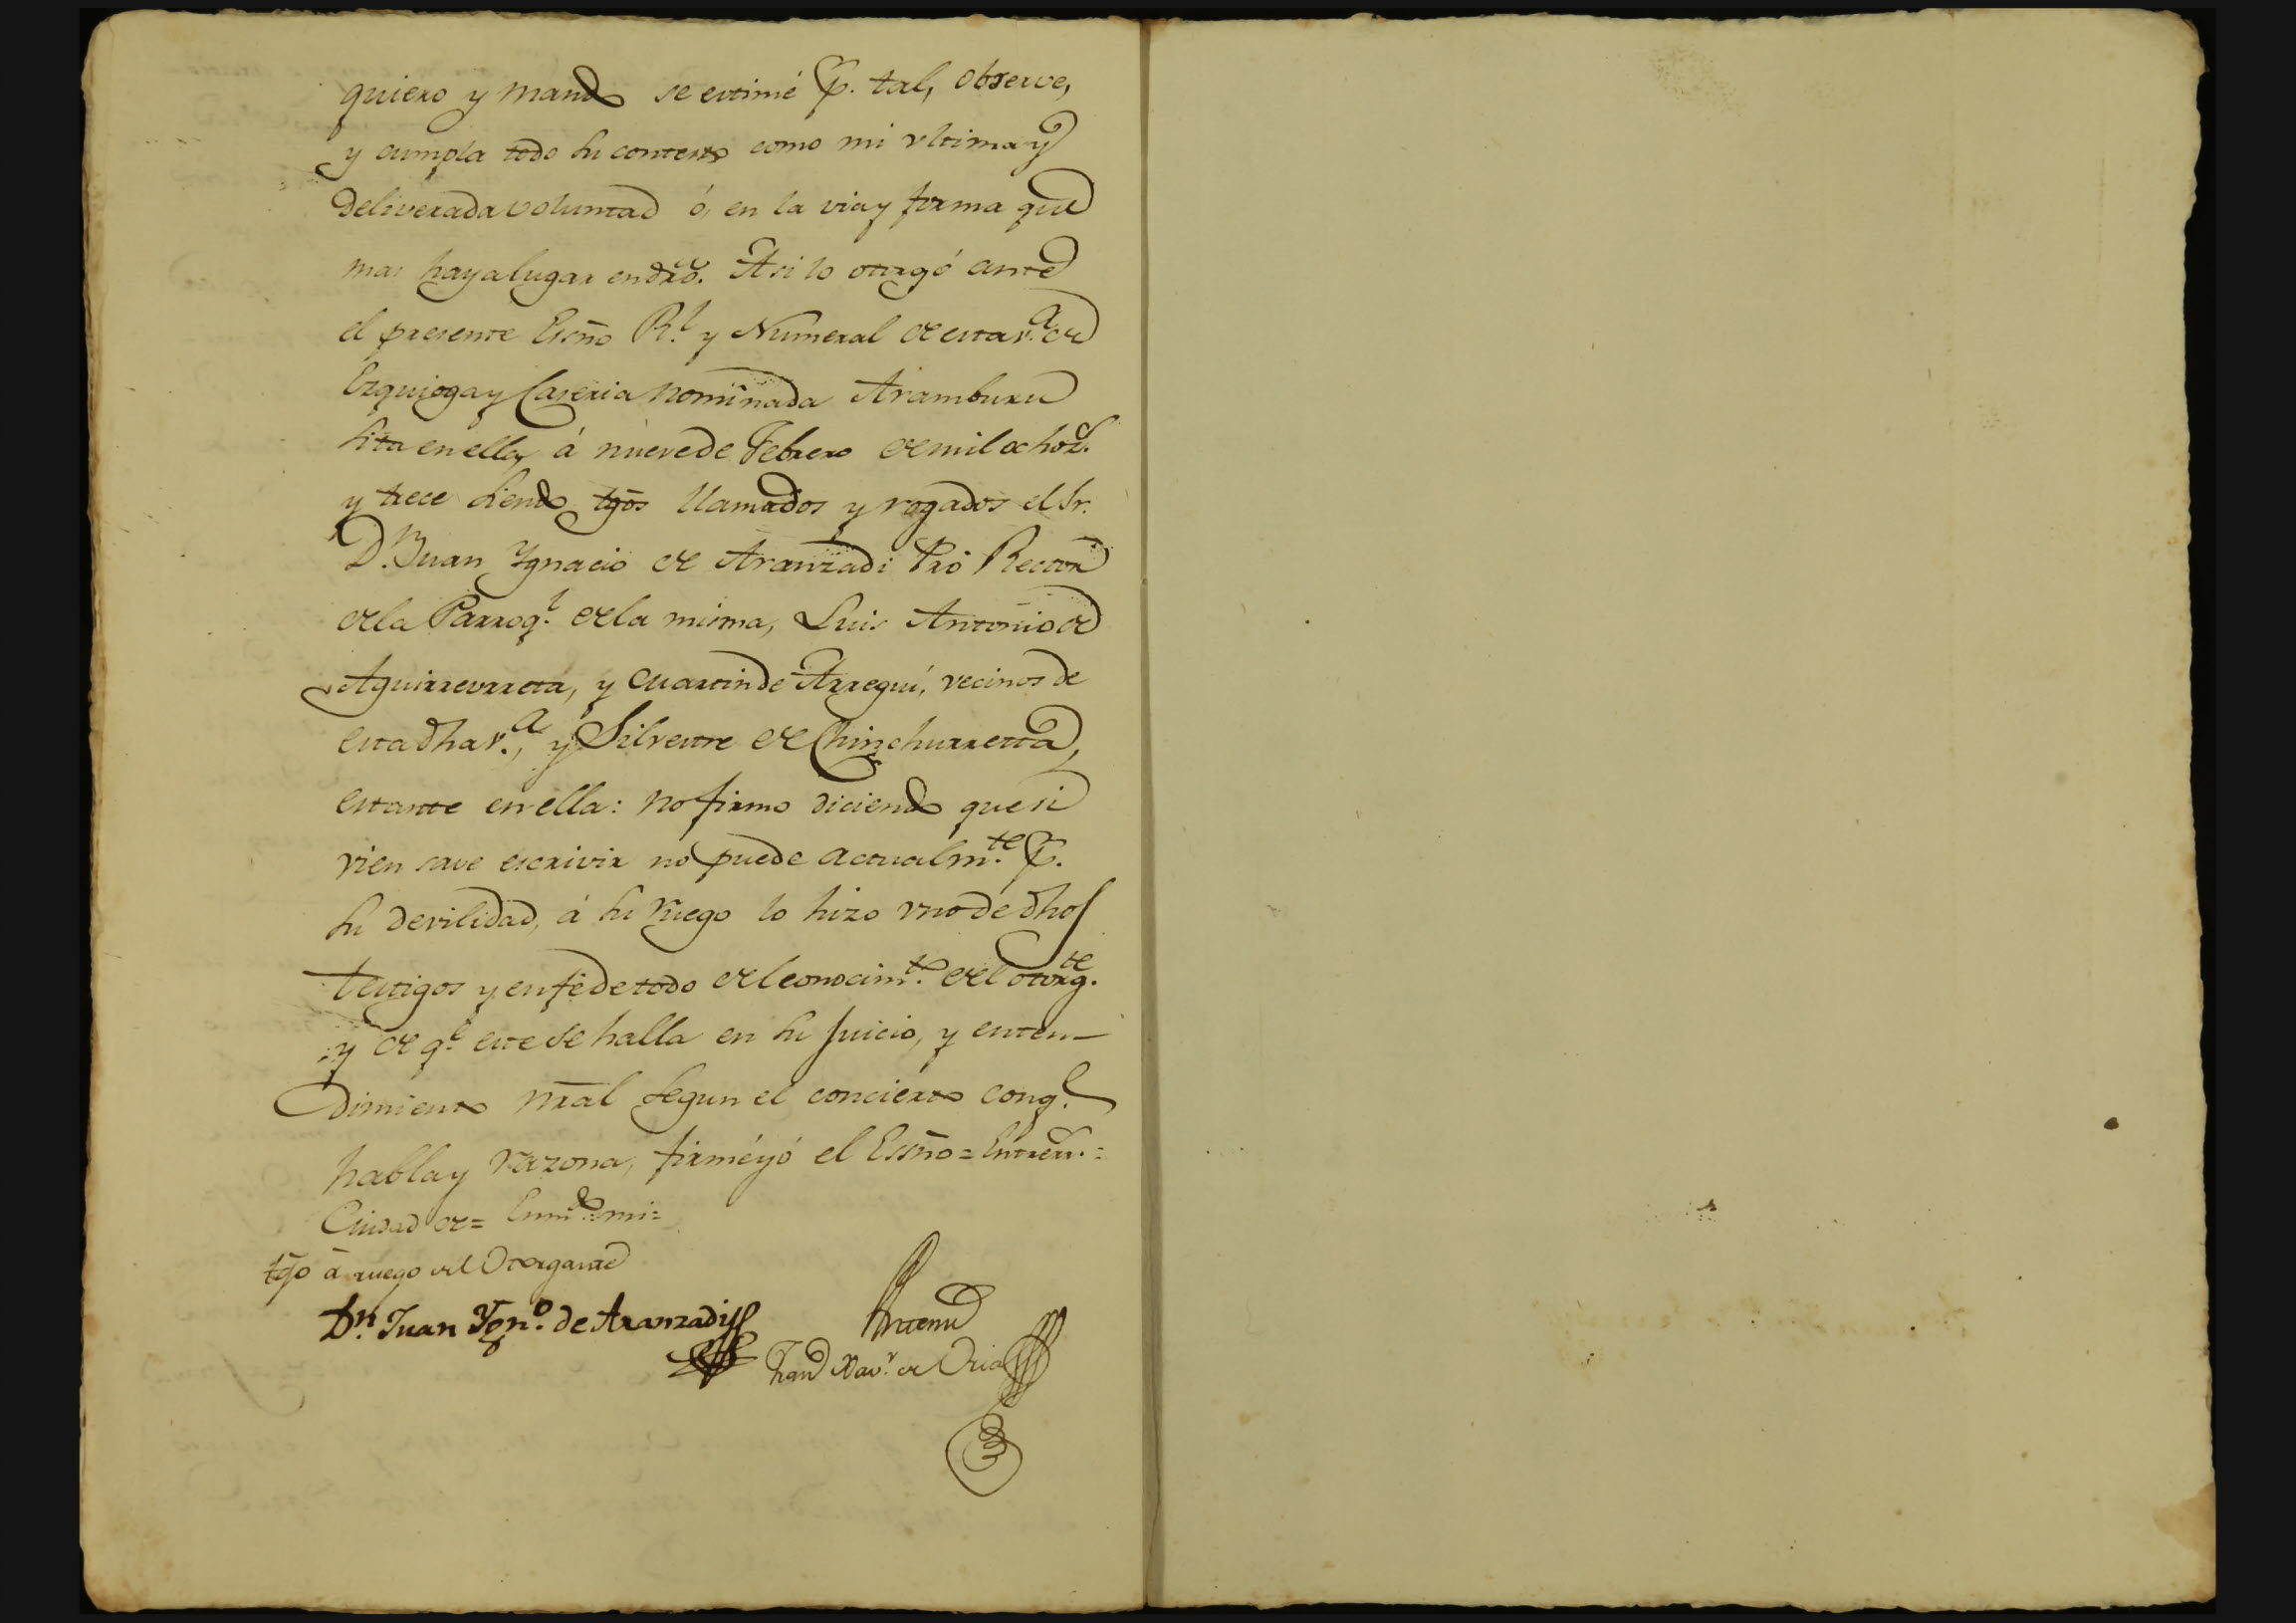 quiero y mando se estime p.r tal, observe,
y cumpla todo su contexto como mi ultima y
deliverada voluntad ó, en la via y forma que
mas haya lugar en dro. Asi lo otorgó ante
el presente Esno R.l y Numeral de esta v.a de
Ezquioga y Caseria nominada Aramburu
sita en ella, á nueve de Febrero de mil ochoz.s
y trece siendo tgos llamados y rogados el Sr.
D.n Juan Ygnacio de Aranzadi Pro Rector
de la Parroq.l de la misma, Luis Antonio de
Aguirreurreta, y Martin de Arregui, vecinos de
esta dha v.a, y Silvestre de Chinchurretta,
estante en ella: no firmo diciendo que si
vien save escrivir no puede actualm.te p.r
su devilidad, á su ruego lo hizo uno de dhos
testigos y en fe de todo del conocim.to del otorg.te
y de q.e este se halla en su Juicio, y enten-
dimiento nral segun el concierto con q.e
habla y razona, firmé yó el Esno = Entrerr.s =
Ciudad de = Enm.do mi =
tgo á ruego del Otorgante
Dn. Juan Ygn.o de Aranzadi
Antemi
Fran.co Xav.r de Oria